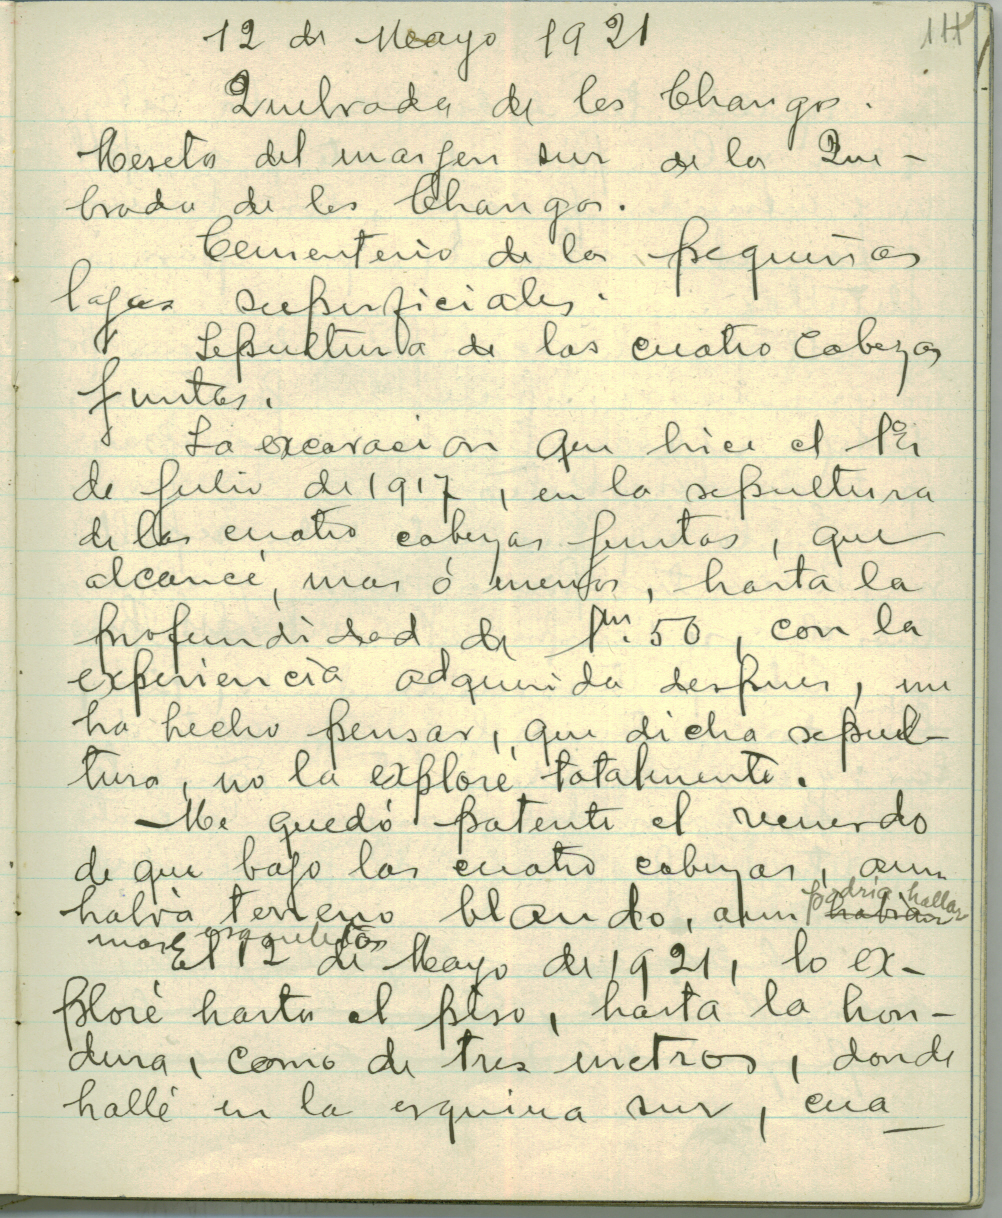 111
12 de Mayo 1921
Quebrada de los Changos.
Meseta del margen sur de la Que-
brada de los Changos.
Cementerio de las pequeñas
lajas superficiales.
Sepultura de las cuatro cabezas
juntas.
La excavacion que hice el 1er
de Julio de 1917, en la sepultura
de las cuatro cabezas juntas, que
alcancé, mas ó menos, hasta la
profundidad de 1m.50, con la
experiencia adquirida despues, me
ha hecho pensar, que dicha sepul-
tura, no la exploré totalmente.
Me quedó patente el recuerdo
de que bajo las cuatro cabezas, aun
podria hallar
habia terreno blando, aun
mas esqueletos
El 12 de Mayo de 1921, lo ex-
ploré hasta el piso, hasta la hon-
dura, como de tres metros, donde
hallé en la esquina sur, cua